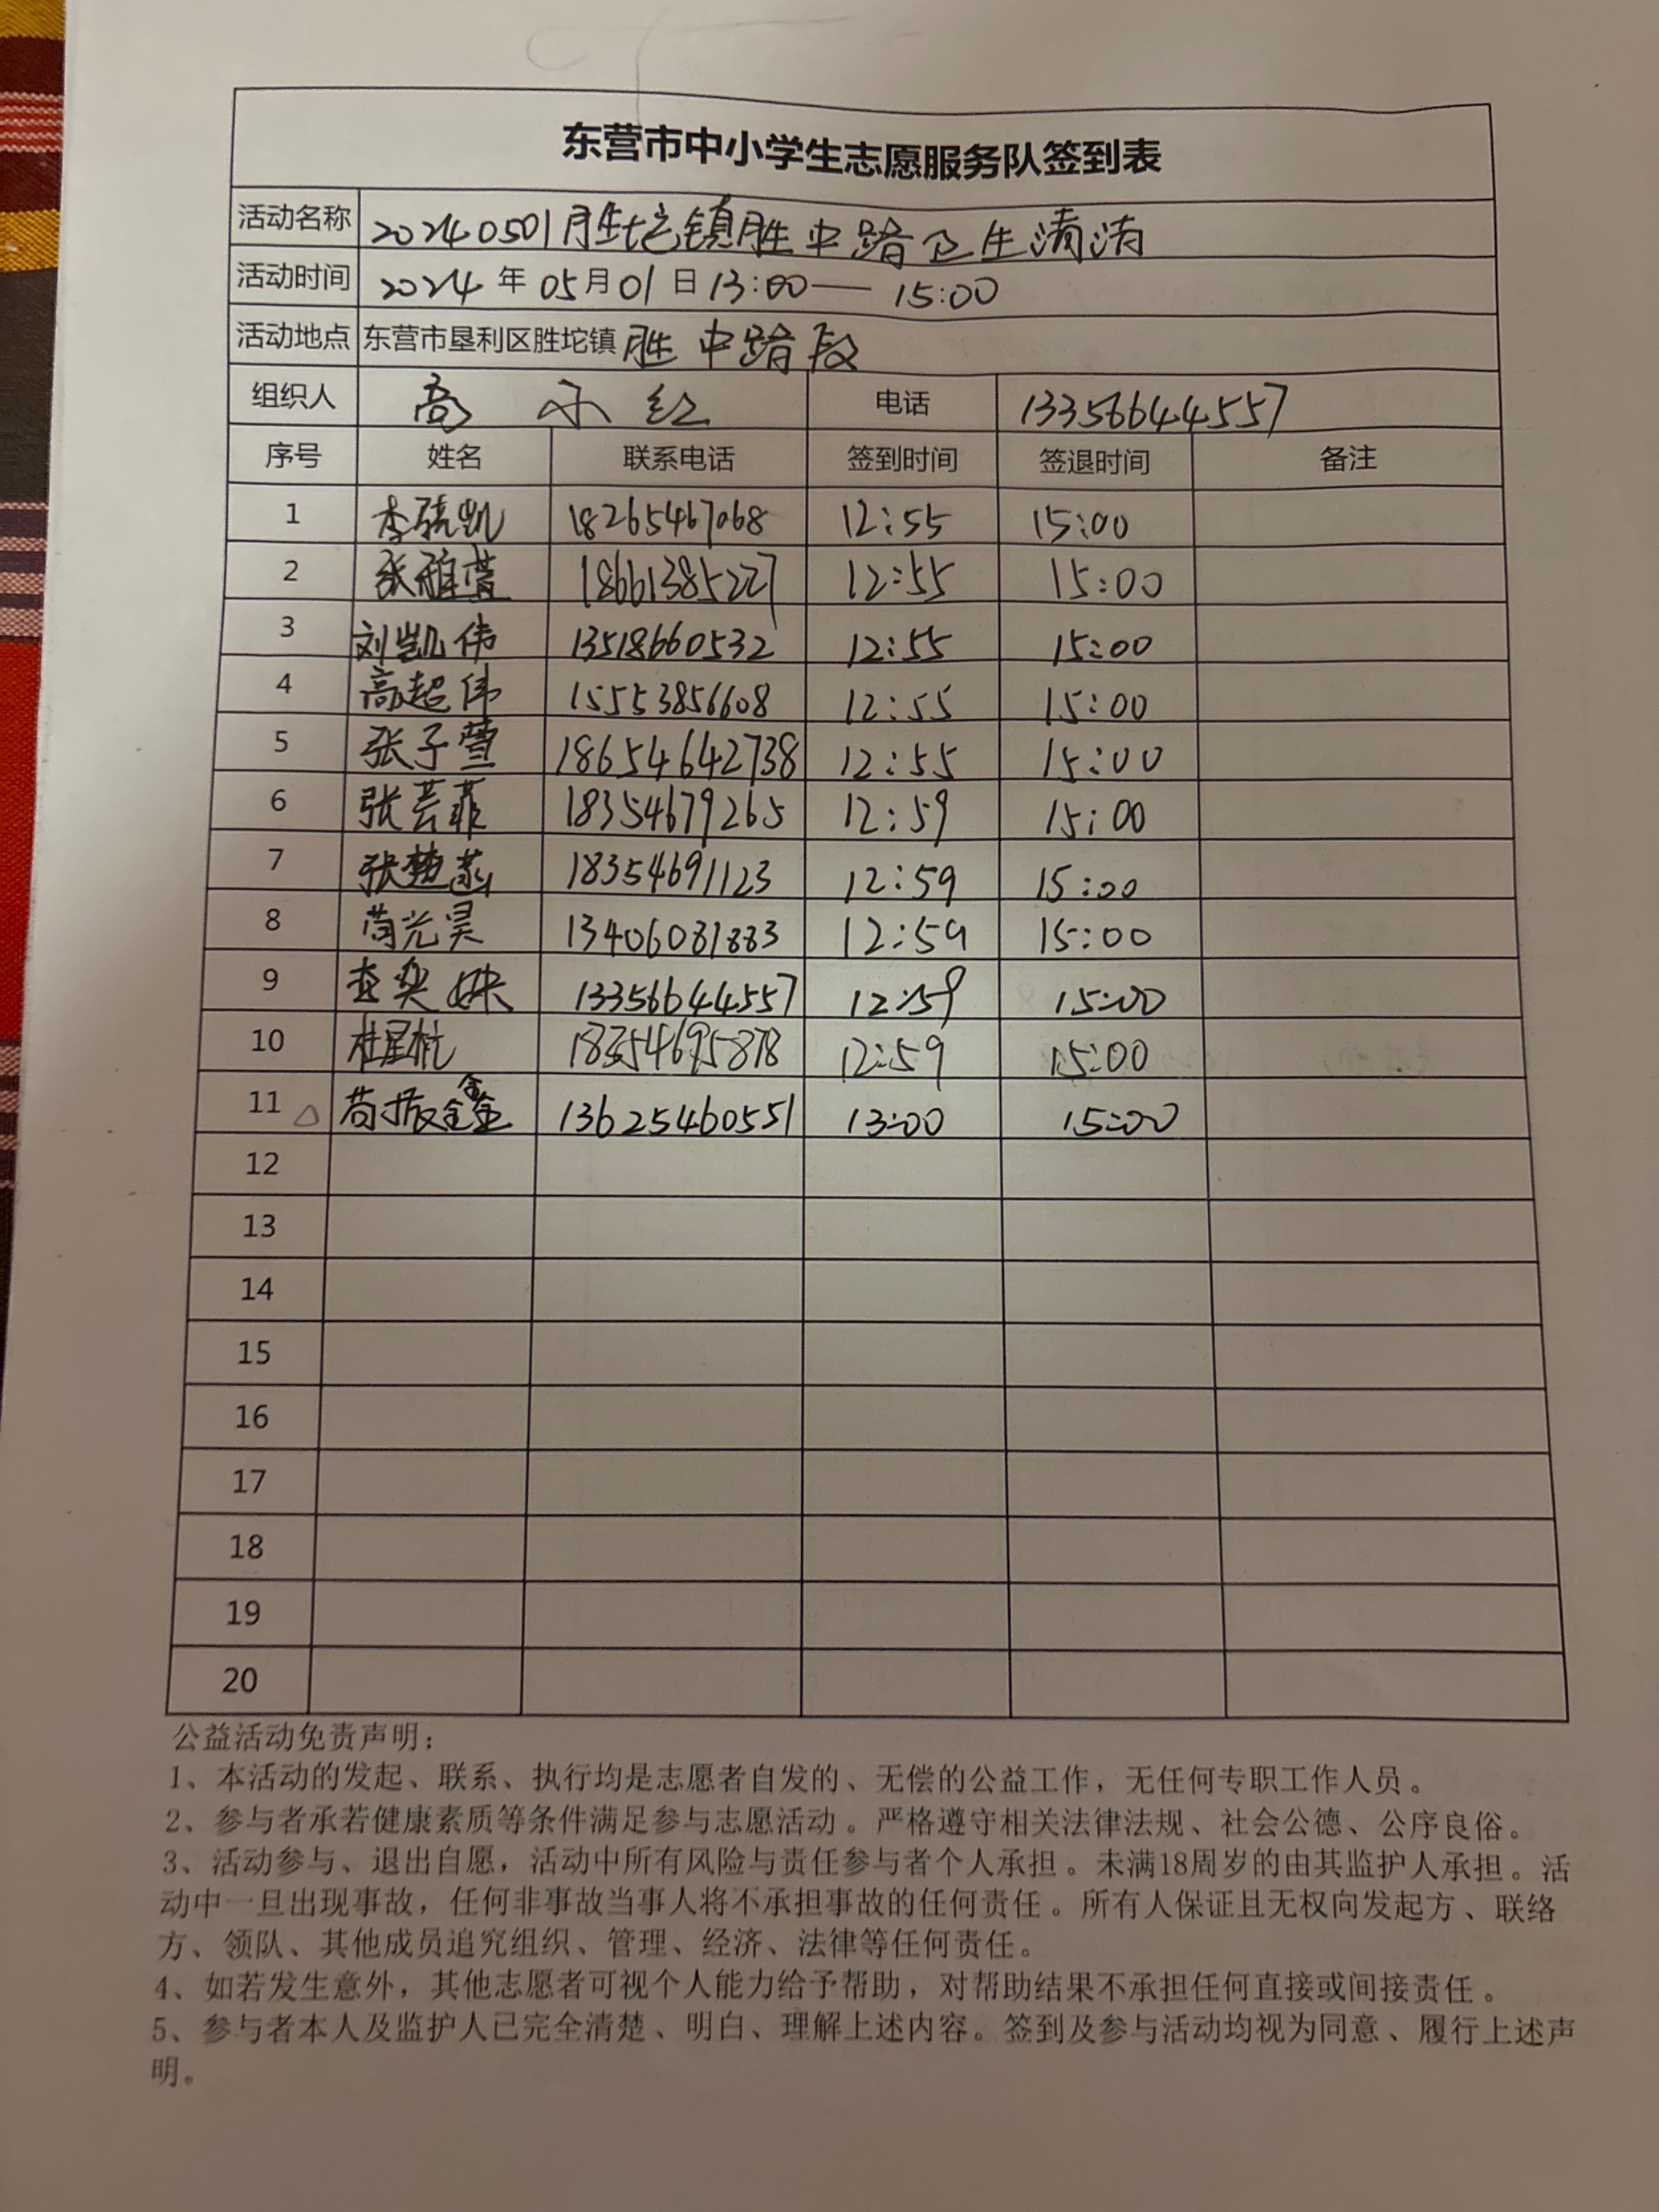 东营市中小学生志愿服务队签到表
活动名称 20240501胜坨镇胜中路卫生清洁
活动时间 2024年05月01日13:00—15:00
活动地点 东营市垦利区胜坨镇胜中路段
组织人 高小红 电话 13356644557
序号 姓名 联系电话 签到时间 签退时间 备注
1 李骐凯 18265467068 12:55 15:00
2 张雅萱 18661385227 12:55 15:00
3 刘凯伟 13518660532 12:55 15:00
4 高超伟 15553856608 12:55 15:00
5 张子萱 18654642738 12:55 15:00
6 张芸菲 18354679265 12:59 15:00
7 张楚菡 18354691123 12:59 15:00
8 苘光昊 13406081883 12:59 15:00
9 13356644557 12:59 15:00
10 杜星杭 18354695878 12:59 15:00
11 苘振鑫 13625460551 13:00 15:00
12
13
14
15
16
17
18
19
20
公益活动免责声明：
1、本活动的发起、联系、执行均是志愿者自发的、无偿的公益工作，无任何专职工作人员。
2、参与者承若健康素质等条件满足参与志愿活动。严格遵守相关法律法规、社会公德、公序良俗。
3、活动参与、退出自愿，活动中所有风险与责任参与者个人承担。未满18周岁的由其监护人承担。活
动中一旦出现事故，任何非事故当事人将不承担事故的任何责任。所有人保证且无权向发起方、联络
方、领队、其他成员追究组织、管理、经济、法律等任何责任。
4、如若发生意外，其他志愿者可视个人能力给予帮助，对帮助结果不承担任何直接或间接责任。
5、参与者本人及监护人已完全清楚、明白、理解上述内容。签到及参与活动均视为同意、履行上述声
明。